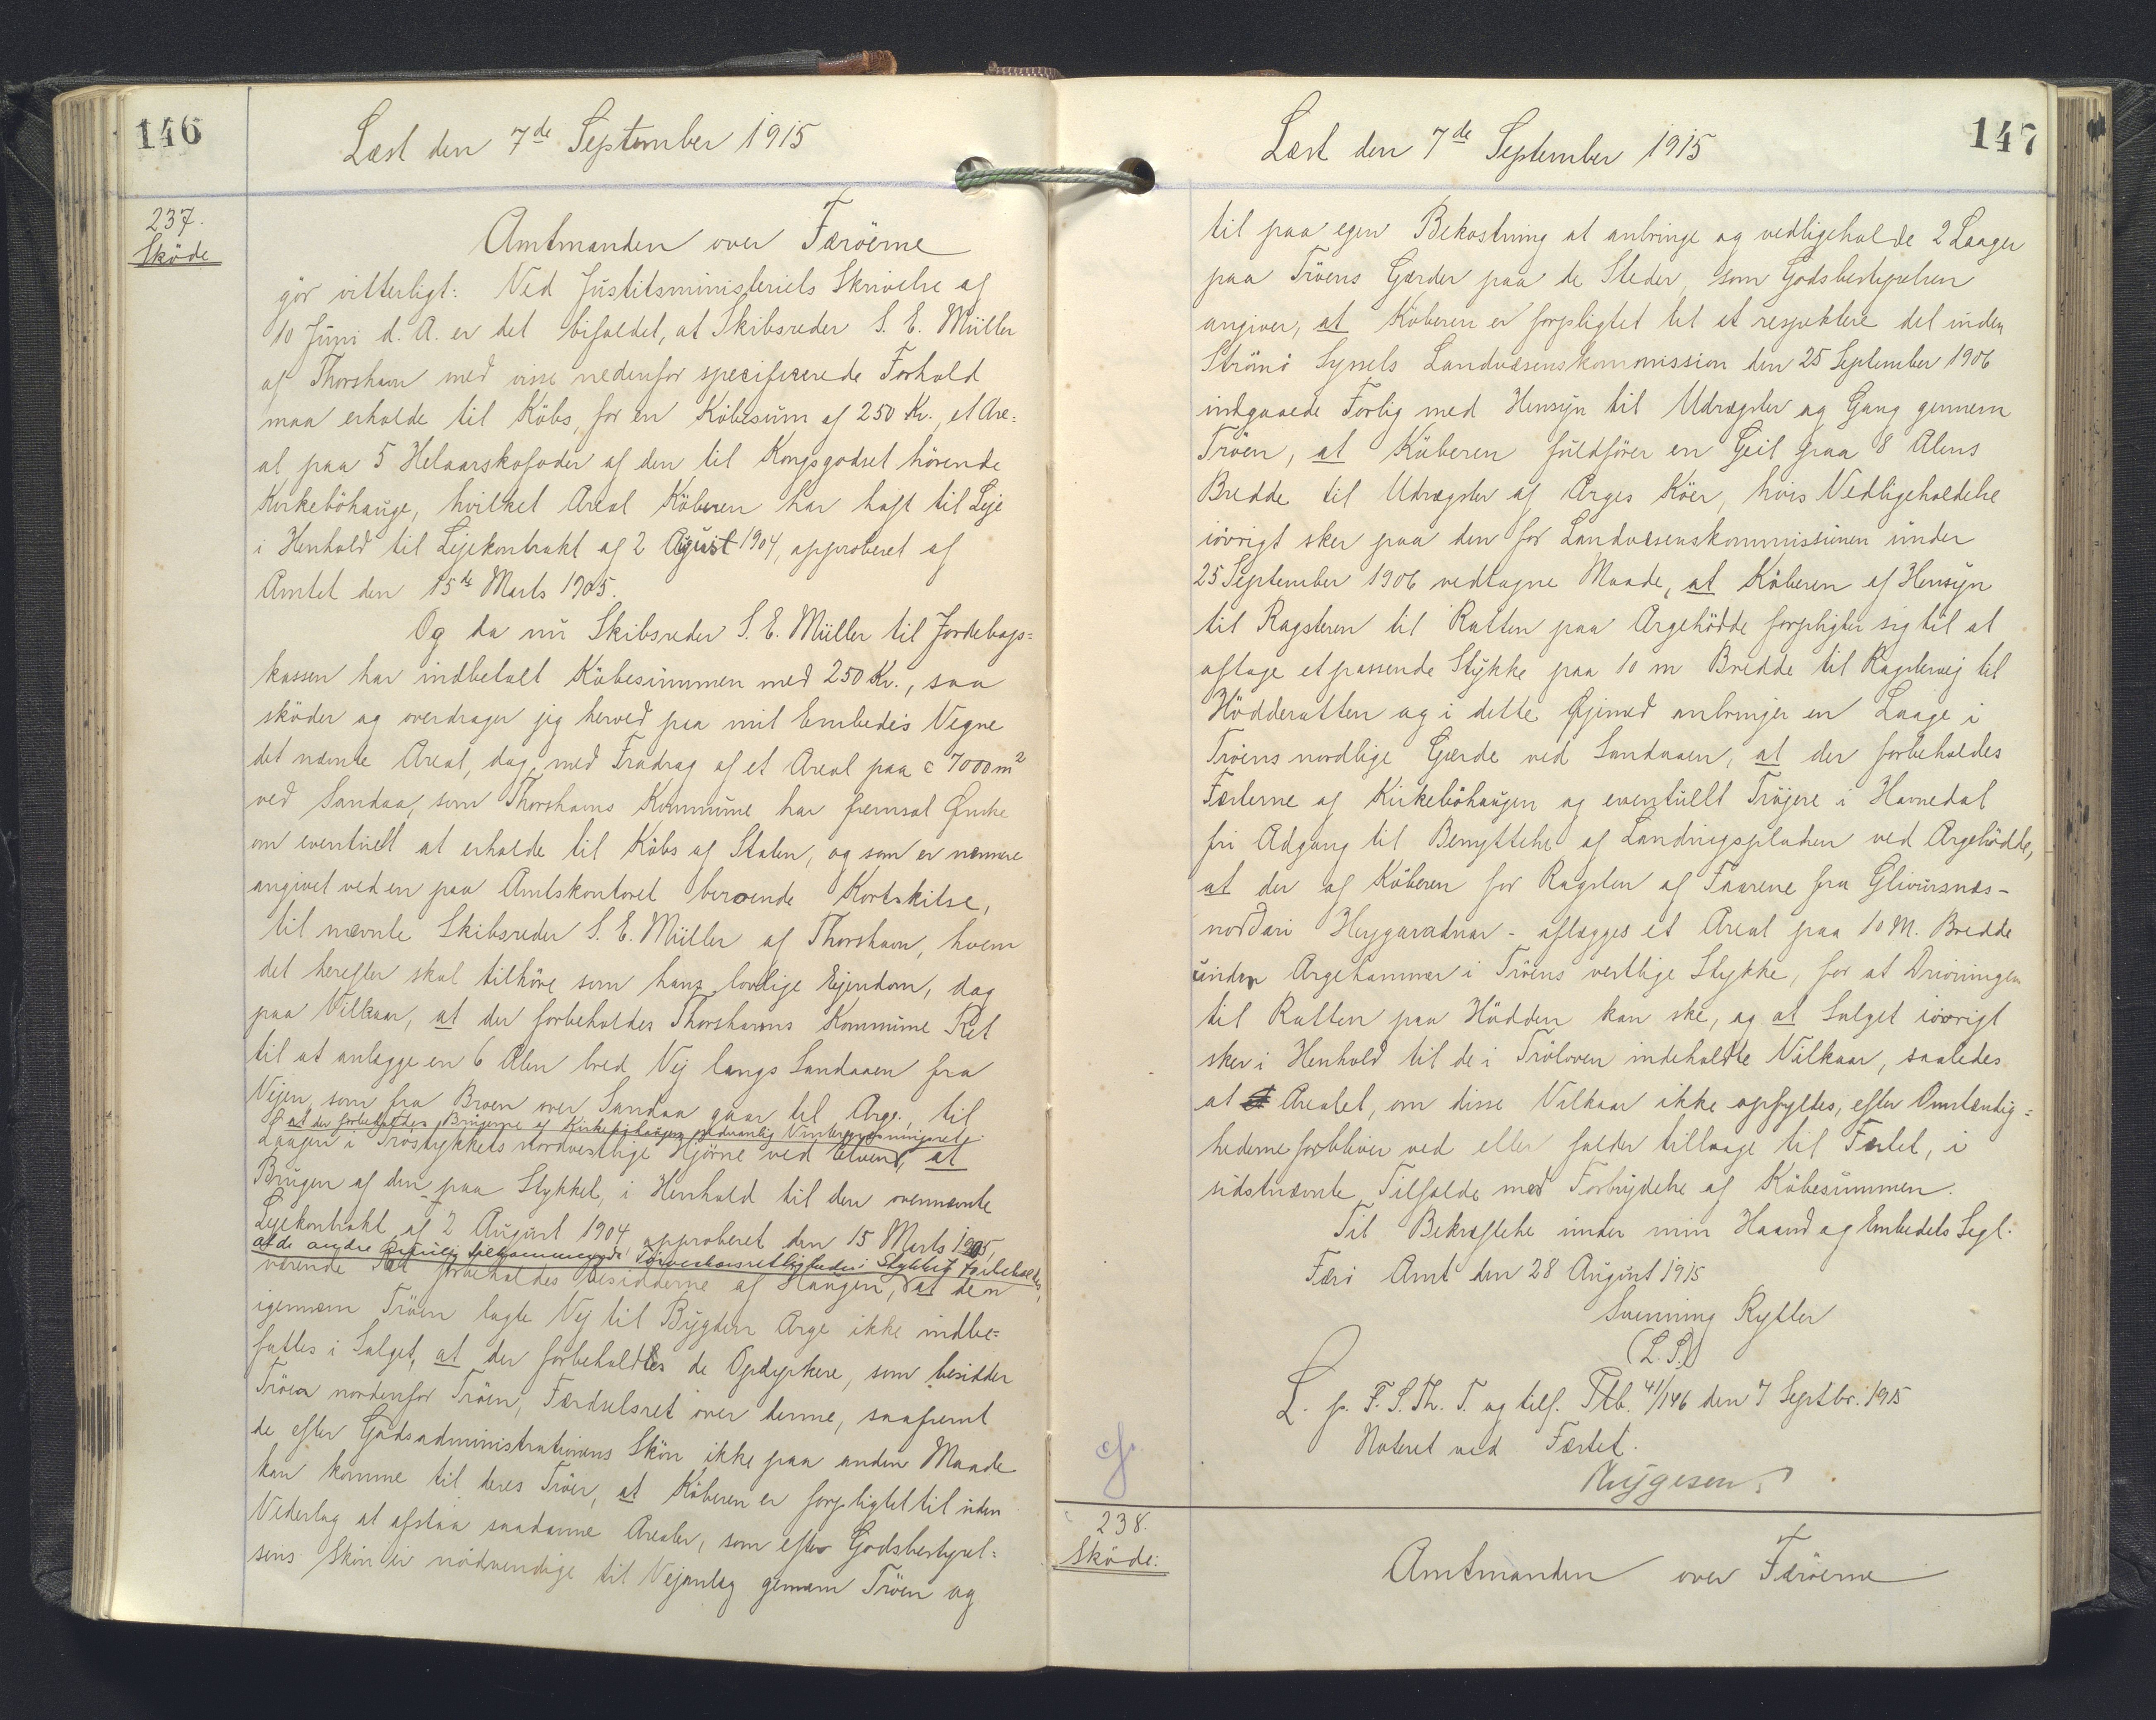 146
Læst den 7de September 1915
237.
Sköde
Amtmanden over Færöerne
gör vitterligt: Ved Justitsministeriets Skrivelse af
10 Juni d. A. er det bifaldet, at Skibsreder S. E. Müller
af Thorshavn med visse nedenfor specificerede Forhold
maa erholde til Köbs, for en Köbesum af 250 Kr., et Are=
al paa 5 Helaarskofoder af den til Kongsgodset hörende
Kirkeböhauge, hvilket Areal Köberen har haft til Leje
i Henhold til Lejekontrakt af 2 August 1904, approberet af
Amtet den 15de Marts 1905.
Og da nu Skibsreder S. E. Müller til Jordebogs=
kassen har indbetalt Köbesummen med 250 Kr., saa
sköder og overdrager jeg herved paa mit Embedes Vegne
det nævnte Areal, dog med Fradrag af et Areal paa c 7000 m2
ved Sandaa, som Thorshavns Kommune har fremsat Ønske
om eventuelt at erholde til Köbs af Staten, og som er nærmere
angivet ved en paa Amtskontoret beroende Kortskitse,
til nævnte Skibsreder S. E. Müller af Thorshavn, hvem
det herefter skal tilhöre som hans lovlige Ejendom, dog
paa Vilkaar, at der forbeholdes Thorshavns Kommune Ret
til at anlægge en 6 Alen bred Vej langs Sandaaen fra
Vejen, som fra Broen over Sandaa gaar til Arge, til
at der forbeholdes Brugerne af Kirkeböhaugen sædvanlig Vintergræsningsret
Laagen i Tröstykkets nordvestlige Hjörne ved Elven, at
Brugen af den paa Stykket, i Henhold til den ovennævnte
Lejekontrakt af 2 August 1904 approberet den 15 Marts 1905,
at de andre tilkommende Törveskæsrettigheder i Stykket forbeholdes,
værende Ret forbeholdes Besidderne af Haugen, at den
igennem Tröen lagte Vej til Bygden Arge ikke indbe=
fattes i Salget, at der forbeholdtes de Opdyrkere, som besidder
Tröer nordenfor Tröen, Færdselsret over denne, saafremt
de efter Godsadministrationens Skön ikke paa anden Maade
kan komme til deres Tröer, at Köberen er forpligtet til uden
Vederlag at afstaa saadanne Arealer, som efter Godsbestyrel=
sens Skön er nödvendige til Vejanlæg gennem Tröen og
147
Læst den 7de September 1915
til paa egen Bekostning at anbringe og vedligeholde 2 Laager
paa Tröens Gærder paa de Steder, som Godsbestyrelsen
angiver, at Köberen er forpligtet til at respektere det inden
Strömö Syssels Landvæsenskommission den 25 September 1906
indgaaede Forlig med Hensyn til Udrægster og Gang gennem
Tröen, at Köberen fuldförer en Geil paa 8 Alens
Bredde til Udrægster af Arges Köer, hvis Vedligeholdelse
iövrigt sker paa den for Landvæsenskommissionen under
25 September 1906 vedtagne Maade, at Köberen af Hensyn
til Ragsteren til Ratten paa Argehödde forpligter sig til at
aftage et passende Stykke paa 10 m Bredde til Ragstervej til
Hödderatten og i dette Øjemed anbringer en Laage i
Tröens nordlige Gærde ved Sandaaen, at der forbeholdes
Fæsterne af Kirkeböhaugen og eventuellt Tröjere i Havnedal
fri Adgang til Benyttelse af Landingspladsen ved Argehödde,
at der af Köberen for Ragsten af Faarene fra Glivursnæs-
norðari Heygaradnar - aflægges et Areal paa 10 M. Bredde
under Argehammer i Tröens vestlige Stykke, for at Drivningen
til Ratten paa Hödden kan ske, og at Salget iövrigt
sker i Henhold til de i Tröloven indeholdte Vilkaar, saaledes
at Arealet, om disse Vilkaar ikke opfyldes, efter Omstændig=
hederne forbliver ved eller falder tilbage til Fæstet, i
sidstnævnte Tilfælde med Forbrydelse af Köbesummen.
Til Bekræftelse under min Haand og Embedets Segl.
Færö Amt den 28 August 1915
Svenning Rytter
(L. S.)
L. p. F. S. Th. T. og tilf. Ptb. 41/146 den 7 Septbr. 1915
Noteret ved Fæstet.
238.
Sköde:
Amtmanden over Færöerne